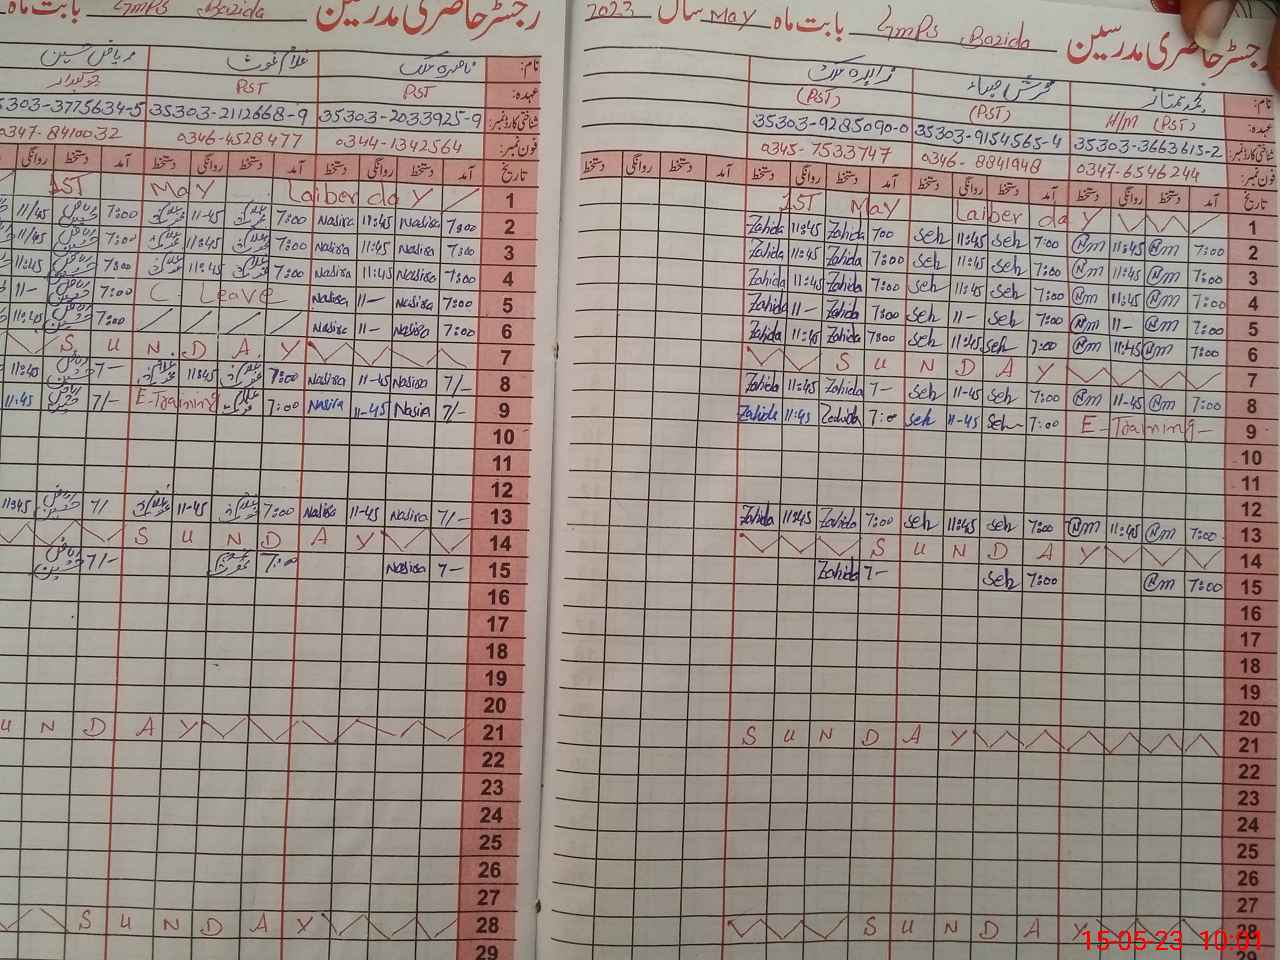 رجسٹر حاضری مدرسین GMPS Bazida بابت ماہ
نام: ناصرہ ملک غلام غوث
عہدہ: PST PST چوکیدار
شناختی کارڈ نمبر: 35303-2033925-9 35303-2112668-9 5303-3775634-5
فون نمبر: 0344-1342564 0346-4528477 0347-8410032
تاریخ آمد دستخط روانگی دستخط آمد دستخط روانگی دستخط آمد دستخط روانگی
1 1ST May Laiber day
2 7:00 Nasira 11:45 Nasira 7:00 11-45 7:00 11/45
3 7:00 Nasira 11:45 Nasira 7:00 11:45 7:00 11/45
4 7:00 Nasira 11:45 Nasira 7:00 11:45 7:00 11:45
5 7:00 Nasira 11- Nasira C. Leave 7:00 11-
6 7:00 Nasira 11- Nasira 7:00 11:45
7 SUNDAY
8 7/- Nasira 11-45 Nasira 7:00 11:45 7- 11:45
9 7/- Nasia 11-45 Nasira 7:00 E-Training 7/- 11:45
10
11
12
13 7/- Nasira 11-45 Nasira 7:00 11-45 7/ 11:45
14 SUNDAY
15 7- Nasira 7:00 7/-
16
17
18
19
20
21 UNDAY
22
23
24
25
26
27
28 SUNDAY
29
رجسٹر حاضری مدرسین GMPS Bazida بابت ماہ May سال 2023
نام: زاہدہ ملک
عہدہ: H/M (PST) (PST) (PST)
شناختی کارڈ نمبر: 35303-3663615-2 35303-9154565-4 35303-9285090-0
فون نمبر: 0347-6546244 0346-8841948 0345-7533747
تاریخ آمد دستخط روانگی دستخط آمد دستخط روانگی دستخط آمد دستخط روانگی دستخط آمد دستخط روانگی دستخط
1 1ST May Laiber day
2 7:00 Nm 11:45 Nm 7:00 Seh 11:45 Seh 700 Zahida 11:45 Zahida
3 7:00 Nm 11:45 Nm 7:00 Seh 11:45 Seh 7:00 Zahida 11:45 Zahida
4 7:00 Nm 11:45 Nm 7:00 Seh 11:45 Seh 7:00 Zahida 11:45 Zahida
5 7:00 Nm 11- Nm 7:00 Seh 11- Seh 7:00 Zahida 11- Zahida
6 7:00 Nm 11:45 Nm 7:00 Seh 11:45 Seh 7:00 Zahida 11:45 Zahida
7 SUNDAY
8 7:00 Nm 11-45 Nm 7:00 Seh 11-45 Seh 7- Zahida 11:45 Zahida
9 E-Training- 7:00 Seh 11-45 Seh 7:00 Zahida 11:45 Zahida
10
11
12
13 7:00 Nm 11:45 Nm 7:00 Seh 11:45 Seh 7:00 Zahida 11:45 Zahida
14 SUNDAY
15 7:00 Nm 7:00 Seh 7- Zahida
16
17
18
19
20
21 SUNDAY
22
23
24
25
26
27
28 SUNDAY
29
15-05-23 10:01